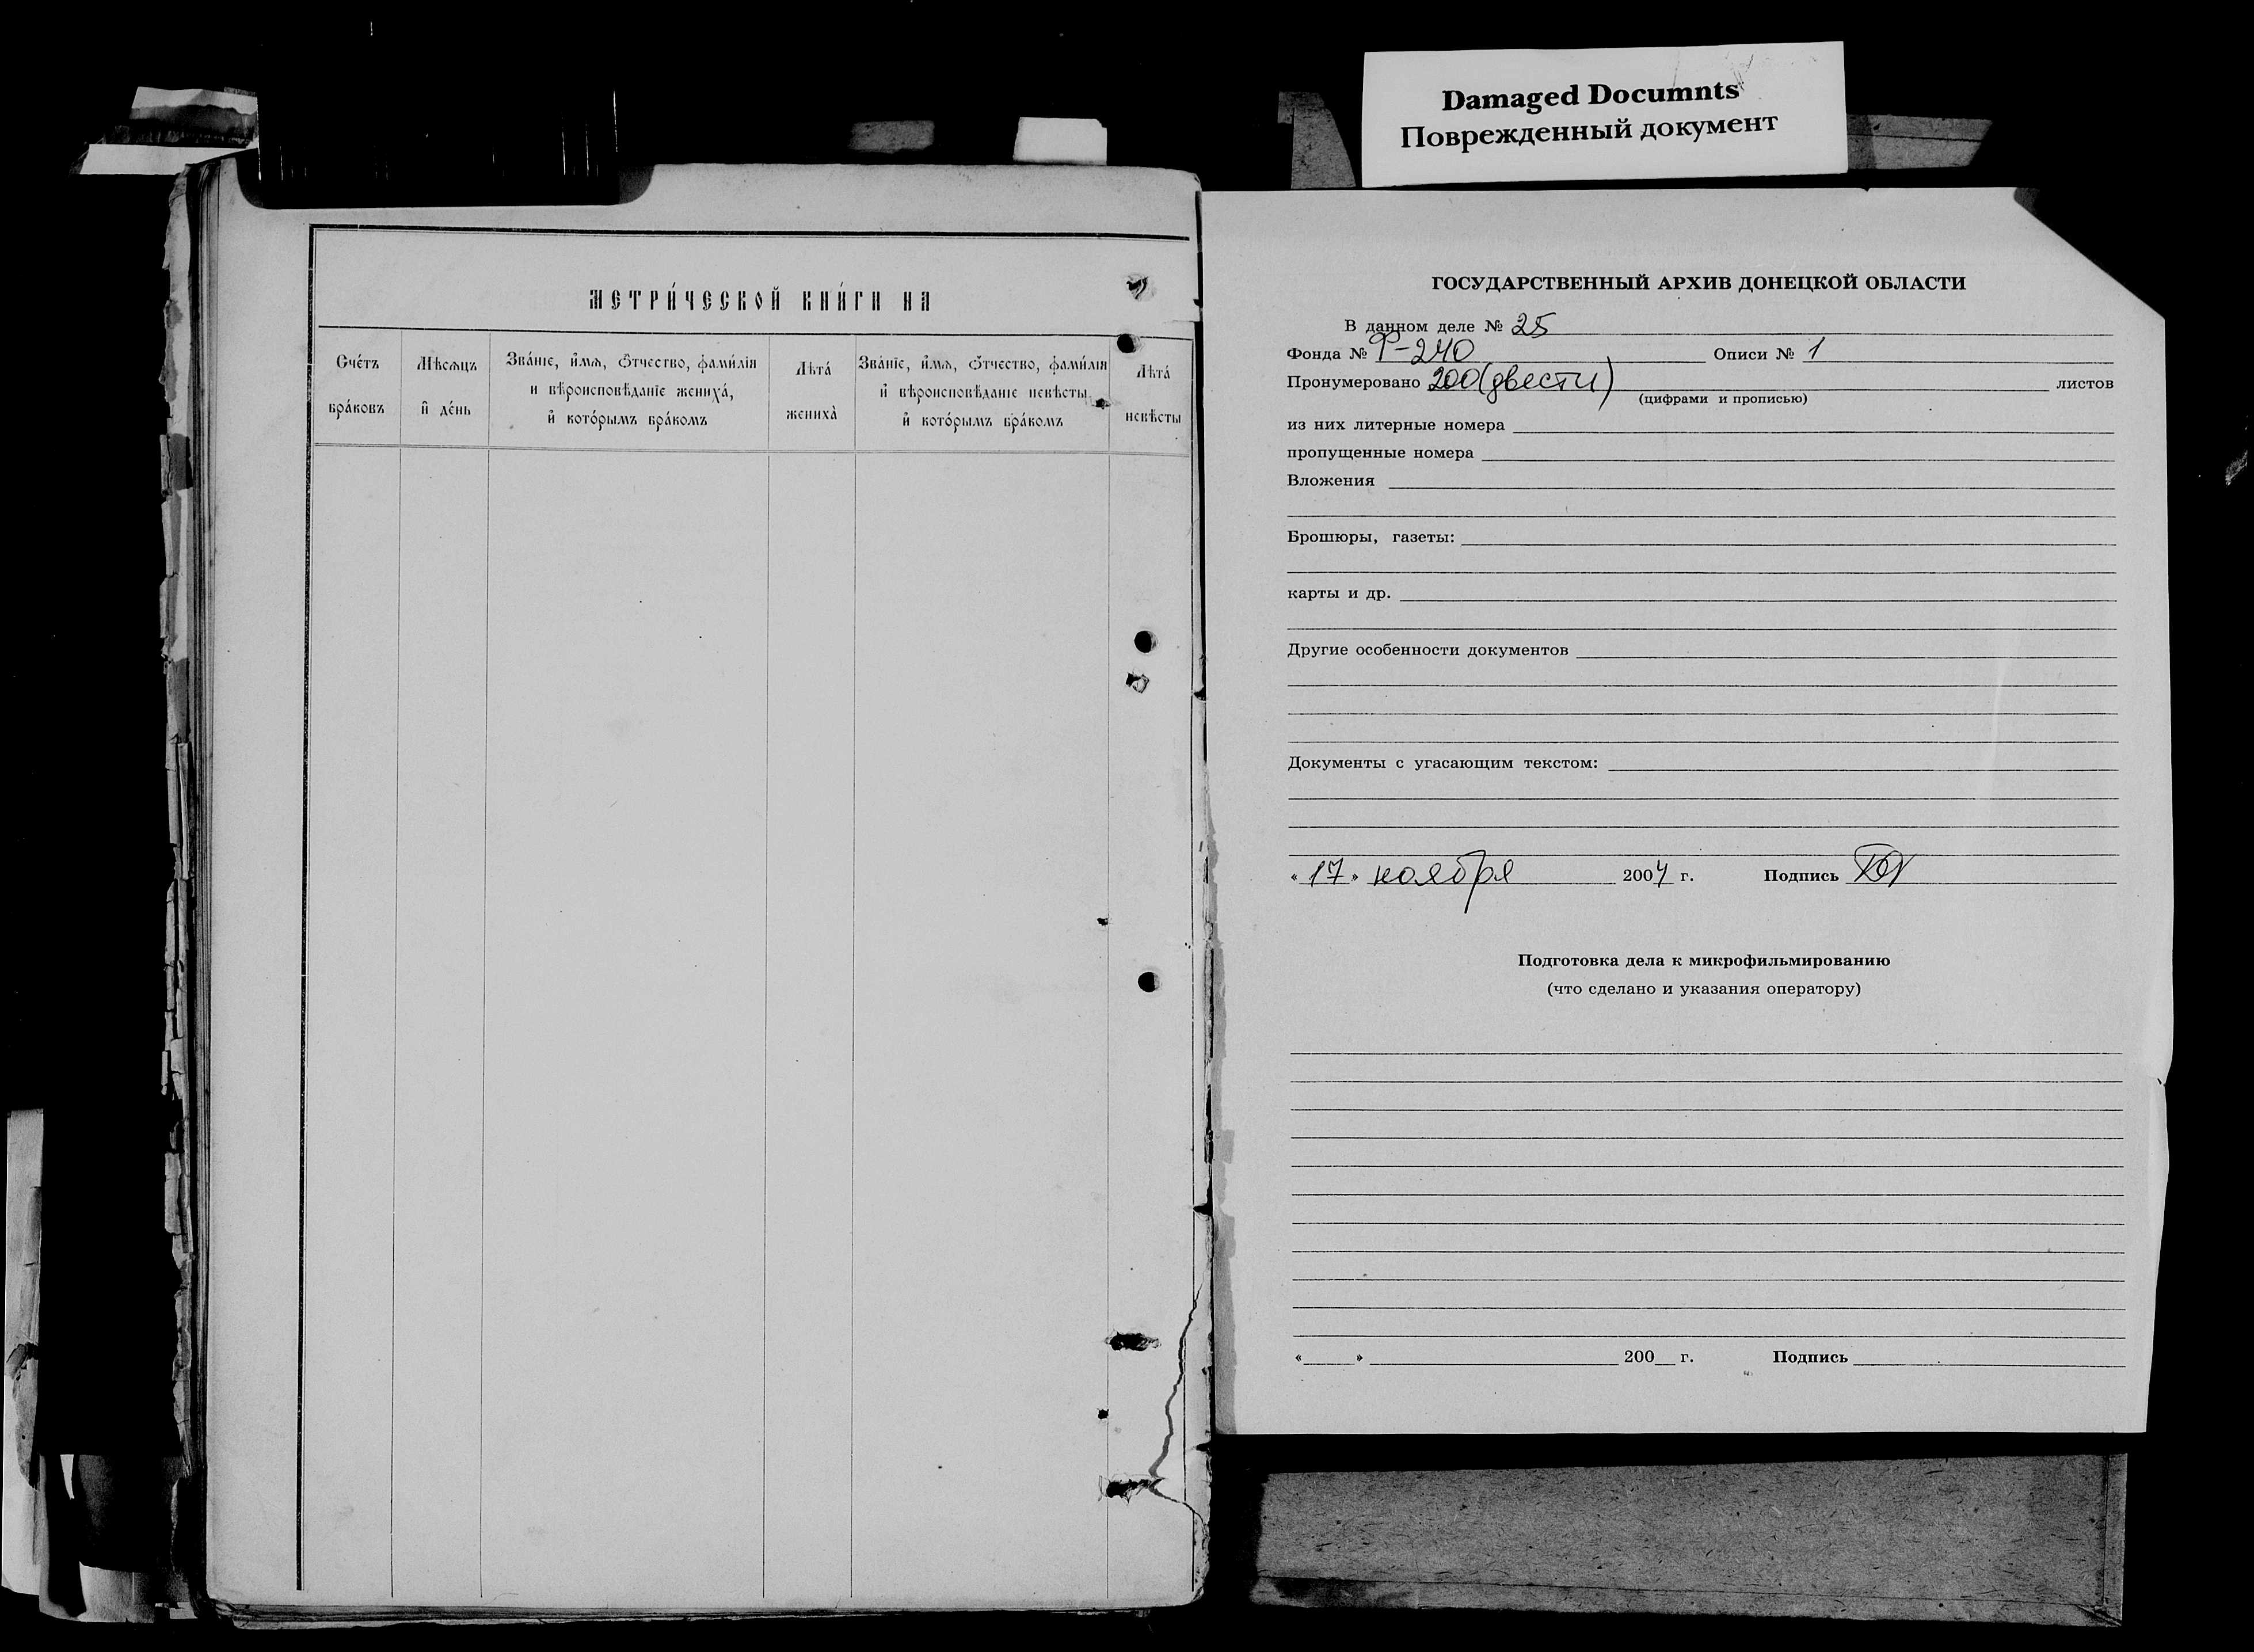 Damaged Documnts
Поврежденный документ
МЕТРИ́ЧЕСКОЙ КНИ́ГИ НА
Сче́тъ бра́ковъ
Мѣ́сѧцъ и҆ де́нь
Зва́нїе, и҆́мѧ, ѻ҆́тчество, фами́лїѧ
и вѣроисповѣ́данїе жениха́,
и҆ кото́рымъ бра́комъ
Лѣта́ жениха̀
Зва́нїе, и҆́мѧ, ѻ҆́тчество, фами́лїѧ
и҆ вѣроисповѣ́данїе невѣ́сты,
и҆ кото́рымъ бра́комъ
Лѣта́ невѣ́сты
ГОСУДАРСТВЕННЫЙ АРХИВ ДОНЕЦКОЙ ОБЛАСТИ
В данном деле № 25
Фонда № Ф-240 Описи № 1
Пронумеровано 200 (двести) листов
(цифрами и прописью)
из них литерные номера
пропущенные номера
Вложения
Брошюры, газеты:
карты и др.
Другие особенности документов
Документы с угасающим текстом:
« 17 » ноября 2004 г. Подпись
Подготовка дела к микрофильмированию
(что сделано и указания оператору)
« » 200 г. Подпись